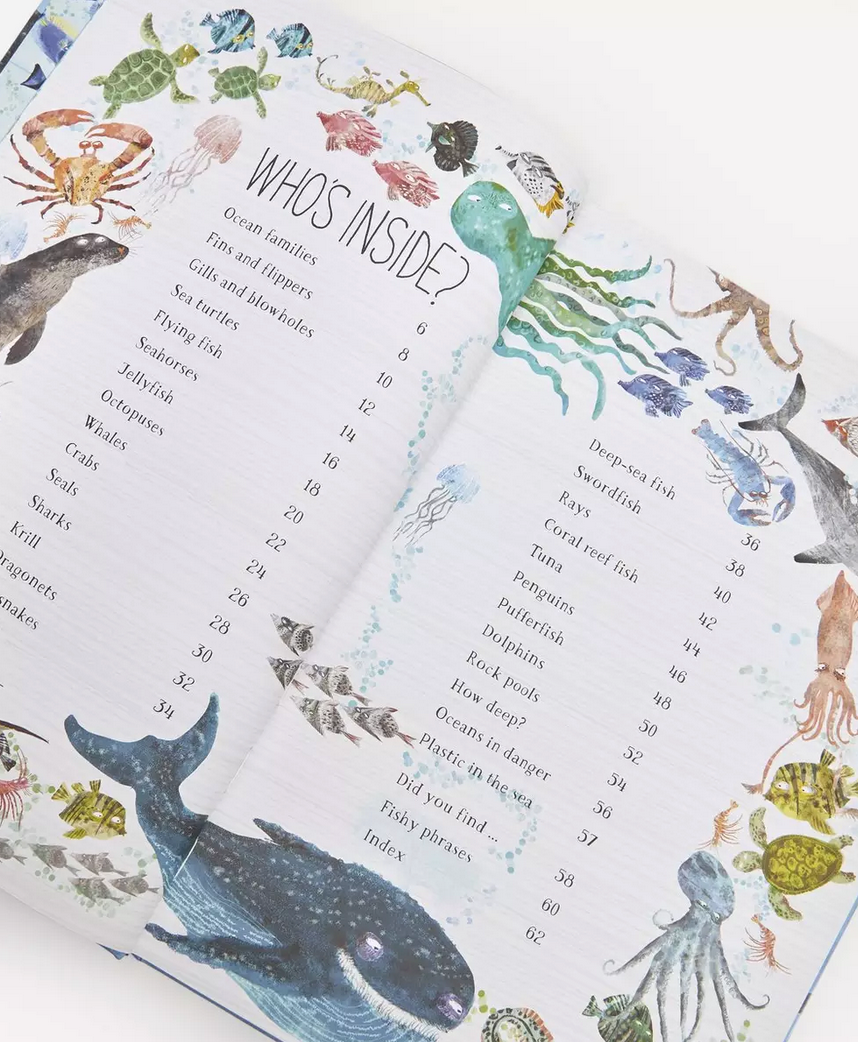 WHO'S INSIDE?
Ocean families 6
Fins and flippers 8
Gills and blowholes 10
Sea turtles 12
Flying fish 14
Seahorses 16
Jellyfish 18
Octopuses 20
Whales 22
Crabs 24
Seals 26
Sharks 28
Krill 30
Dragonets 32
snakes 34
Deep-sea fish 36
Swordfish 38
Rays 40
Coral reef fish 42
Tuna 44
Penguins 46
Pufferfish 48
Dolphins 50
Rock pools 52
How deep? 54
Oceans in danger 56
Plastic in the sea 57
Did you find ... 58
Fishy phrases 60
Index 62